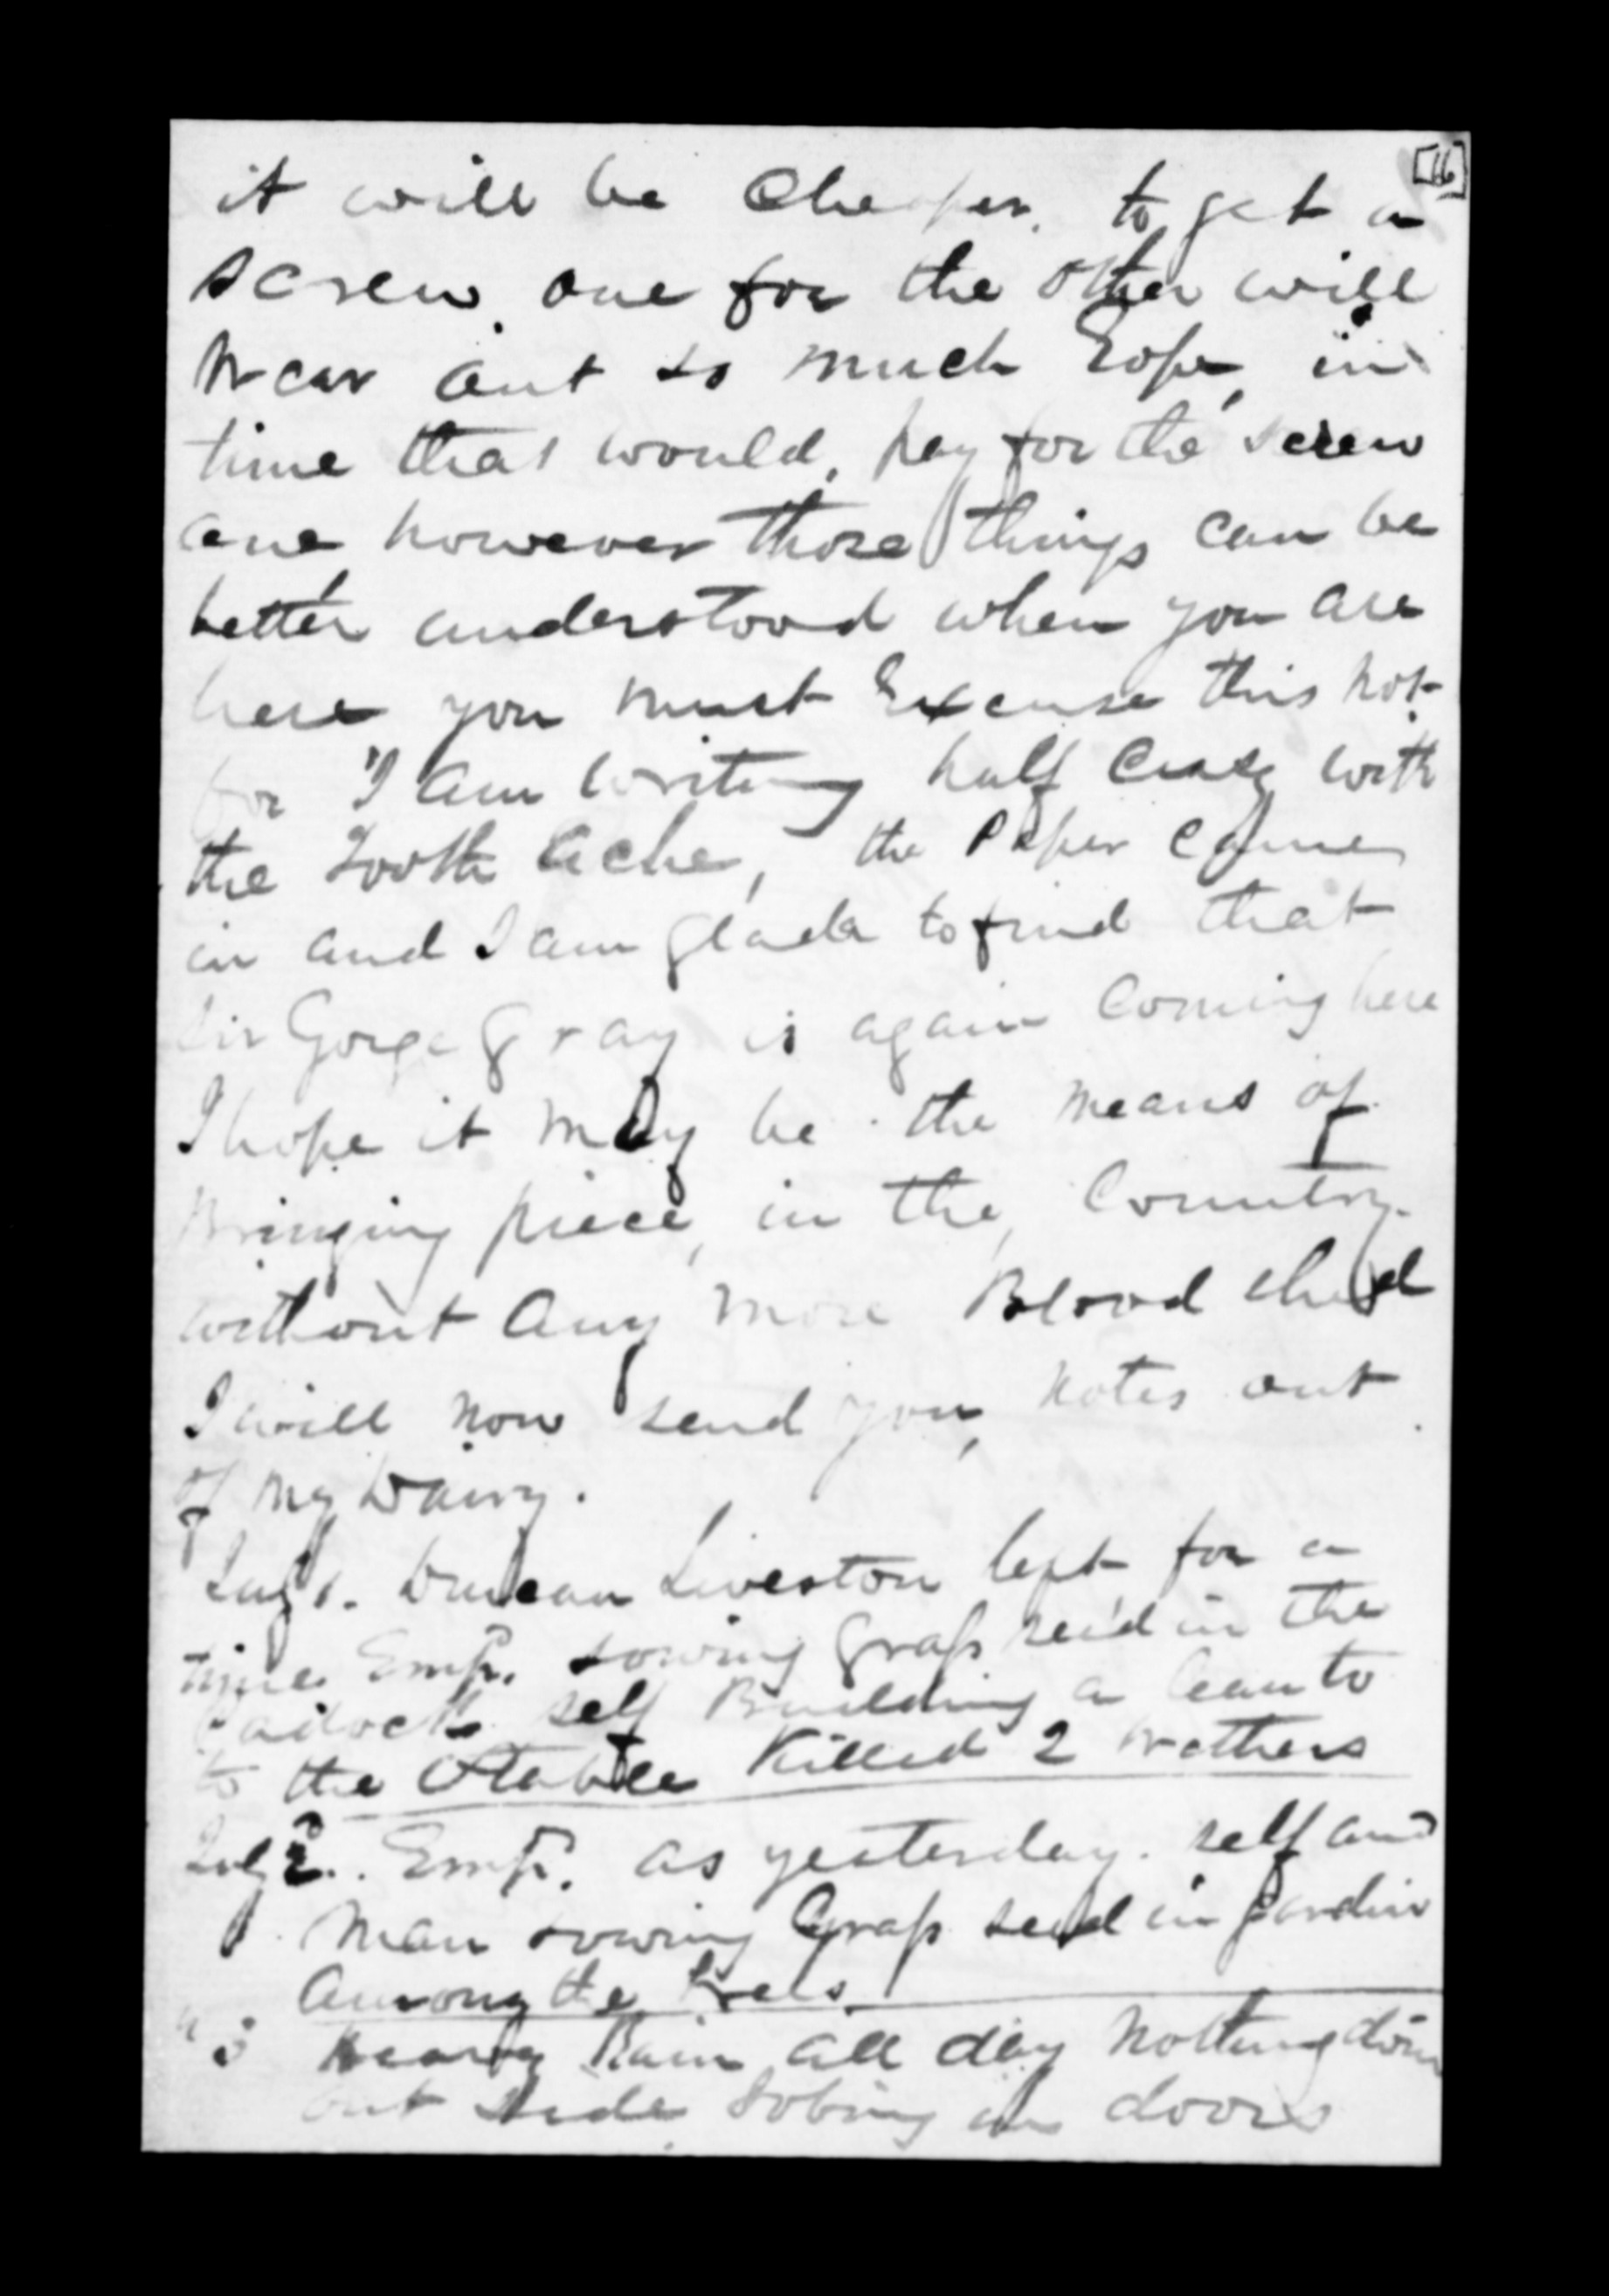 [16]
it will be Cheaper. to get a
screw. one for the other will
Wear out so much Rope, in
time that would, pay for the screw
one however those things can be
better understood when you are
here you must Excuse this not
for I am writing half Crazy with
the Tooth Ache, the Paper Came
in and I am glade to find that
Sir Gorge Gray is again Coming here
I hope it may be the means of
Bringing piece, in the, Country.
without Any more Blood shed
I will now send you, notes out
of my Dairy.
July 1. Duncan Liveston left for a
time. Emp. sowing Grass seed in the
Padock self Building a lean to
to the Stable Killed 2 wethers
July 2. Emp. as yesterday. self and
man sowing Grass seed in gardin
Among the trees.
" 3 Heavy Rain all day Nothing doin
out side Jobing in doors